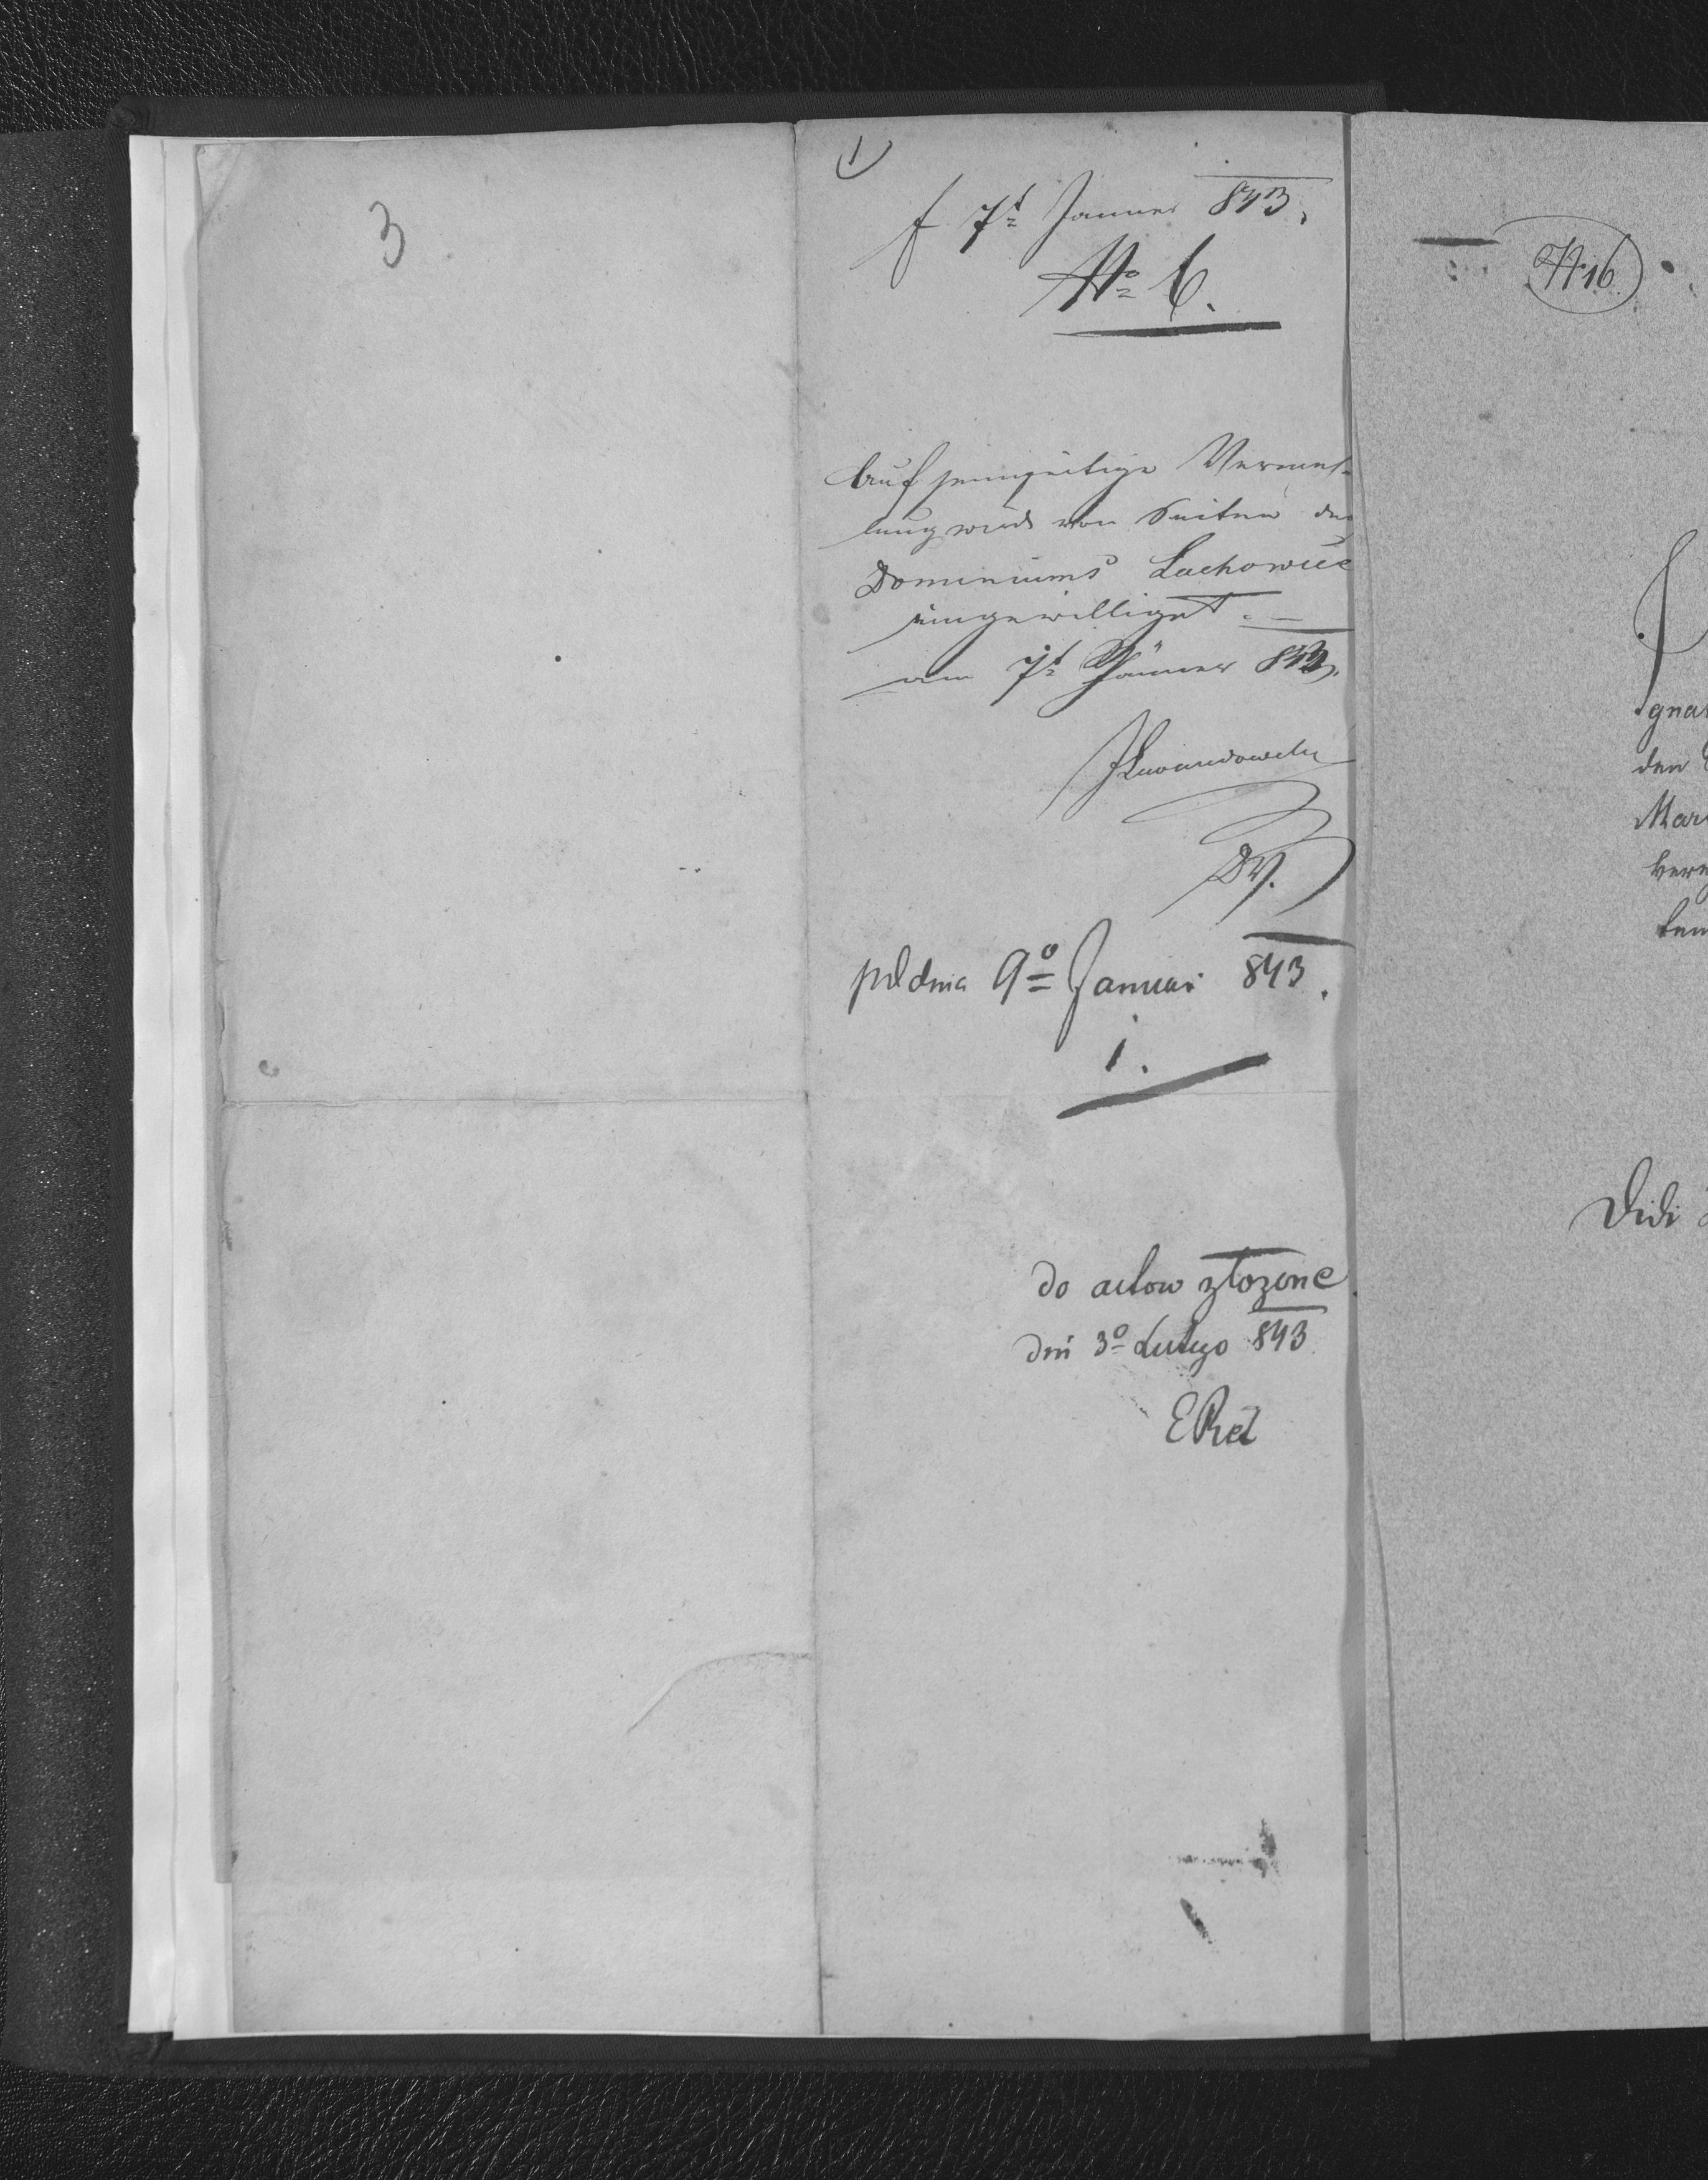 3
1
f 7t Januar 843.
No 6.
Auf jenseitige Vermäh-
lung wird von Seiten des
Dominiums Lachowice
eingewilliget. —
am 7t Jänner 843.
JLewandowski
pld dnia 9o Januar 843.
1.
do actow złozone
dni 3o Lutego 843
ERet
N 16
Ignat
den
Mar
Didi